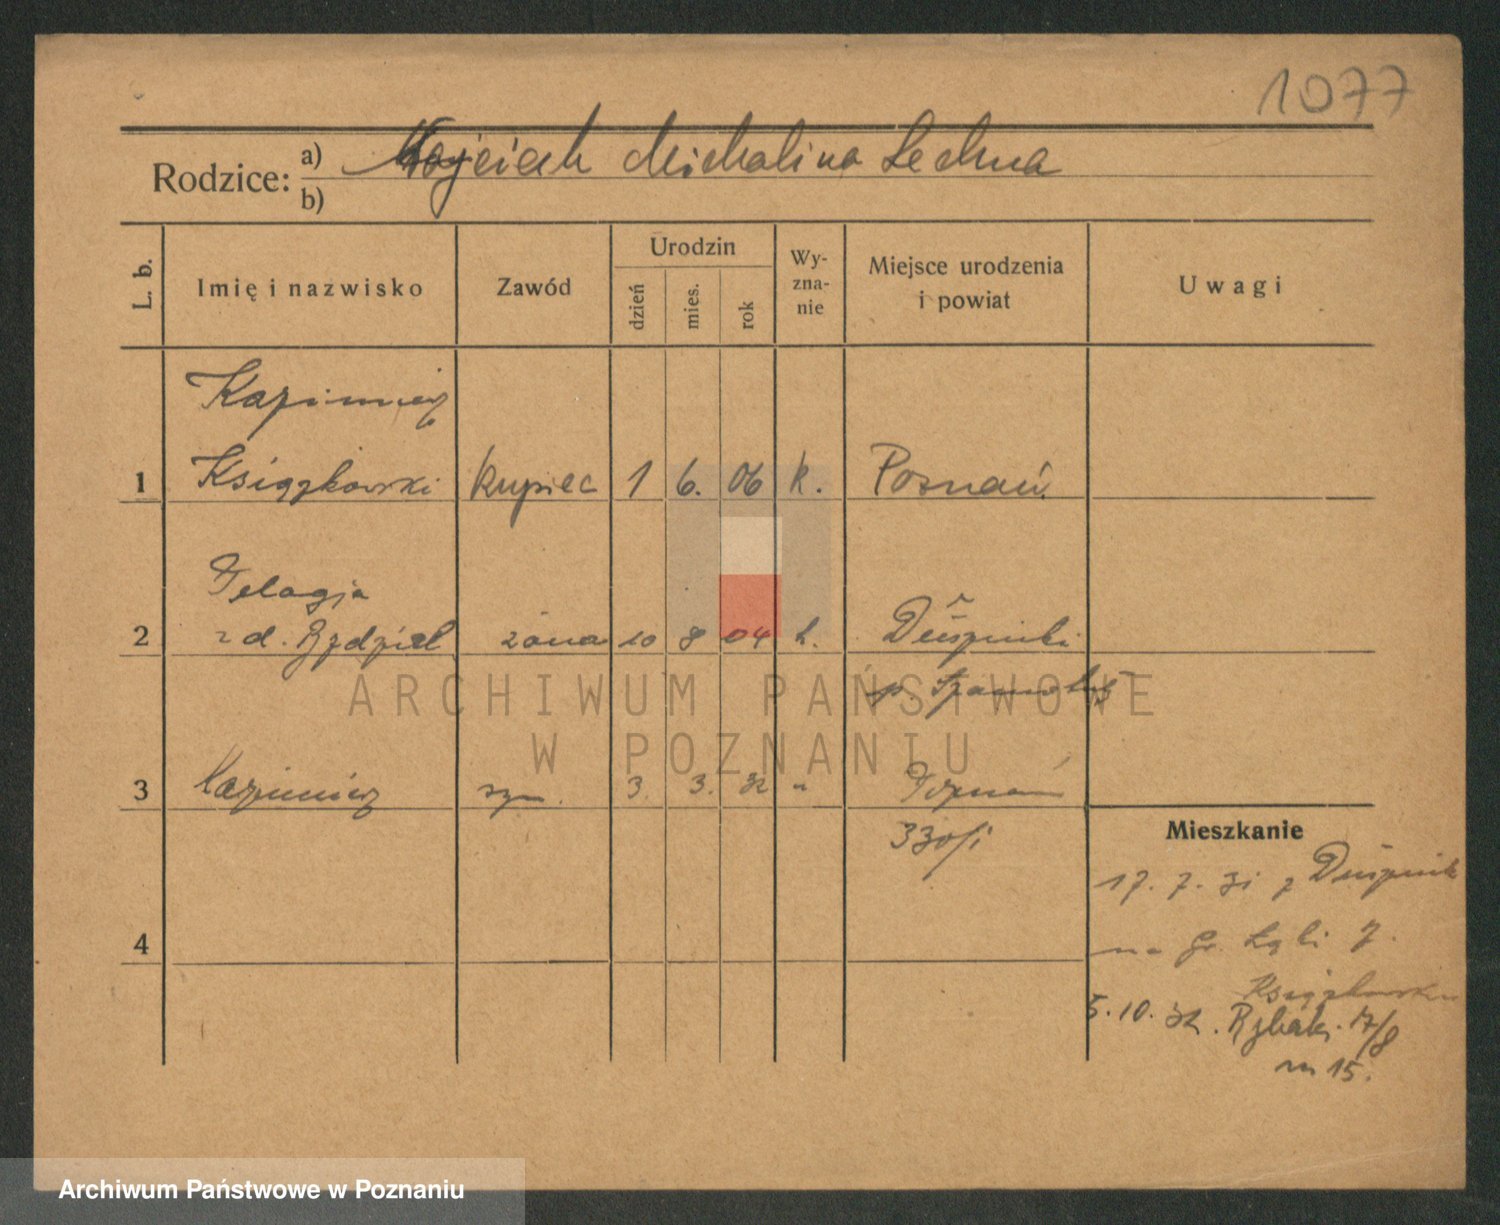 1077
Rodzice: a) Wojciech Michalina Lechna
b)
L. b.
Imię i nazwisko
Zawód
Urodzin
dzień
mies.
rok
Wy-
zna-
nie
Miejsce urodzenia
i powiat
Uwagi
Kazimierz
1 Książkowski kupiec 1 6. 06 k. Poznań
Pelagja
2 z d. Rządziel żona 10 8 04 k. Duszniki
p. Szamotuły
3 Kazimierz syn. 3. 3. 32 " Poznań
330/1
4
Mieszkanie
17. 7. 31 z Dusznik
na Gr. Łąki 7.
Książkowski
5. 10. 32. Rybaki 17/8
m 15.
ARCHIWUM PAŃSTWOWE
W POZNANIU
Archiwum Państwowe w Poznaniu